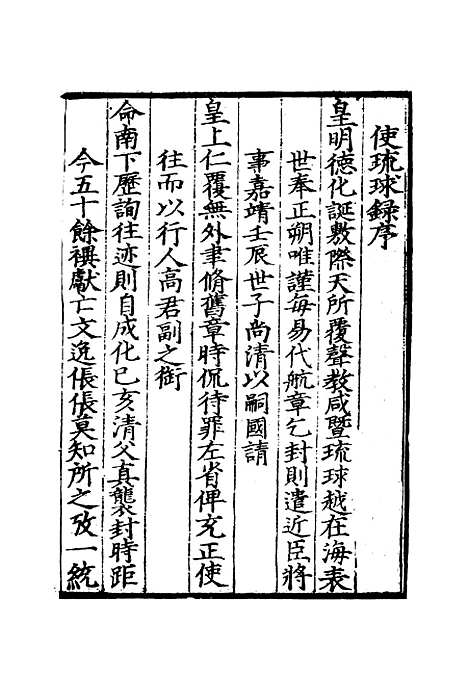 使琉球録序
皇明德化誕敷際天所覆聲教咸暨琉球越在海表
世奉正朔唯謹每易代航章乞封則遣近臣將
事嘉靖壬辰世子尚清以嗣國請
皇上仁覆無外聿脩舊章時侃待罪左省俾充正使
往而以行人高君副之銜
命南下歷詢往迹則自成化己亥清父真襲封時距
今五十餘禩獻亡文逸倀倀莫知所之攷一統